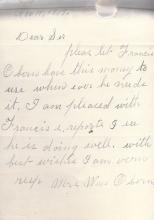 Dear Sir
pleas let Francis
Oborn have this money to
use when ever he needs
it, I am pleased with
Francis's reports I see
he is doing well. with
best wishes I am very
resp. Mrs Wm Oborn